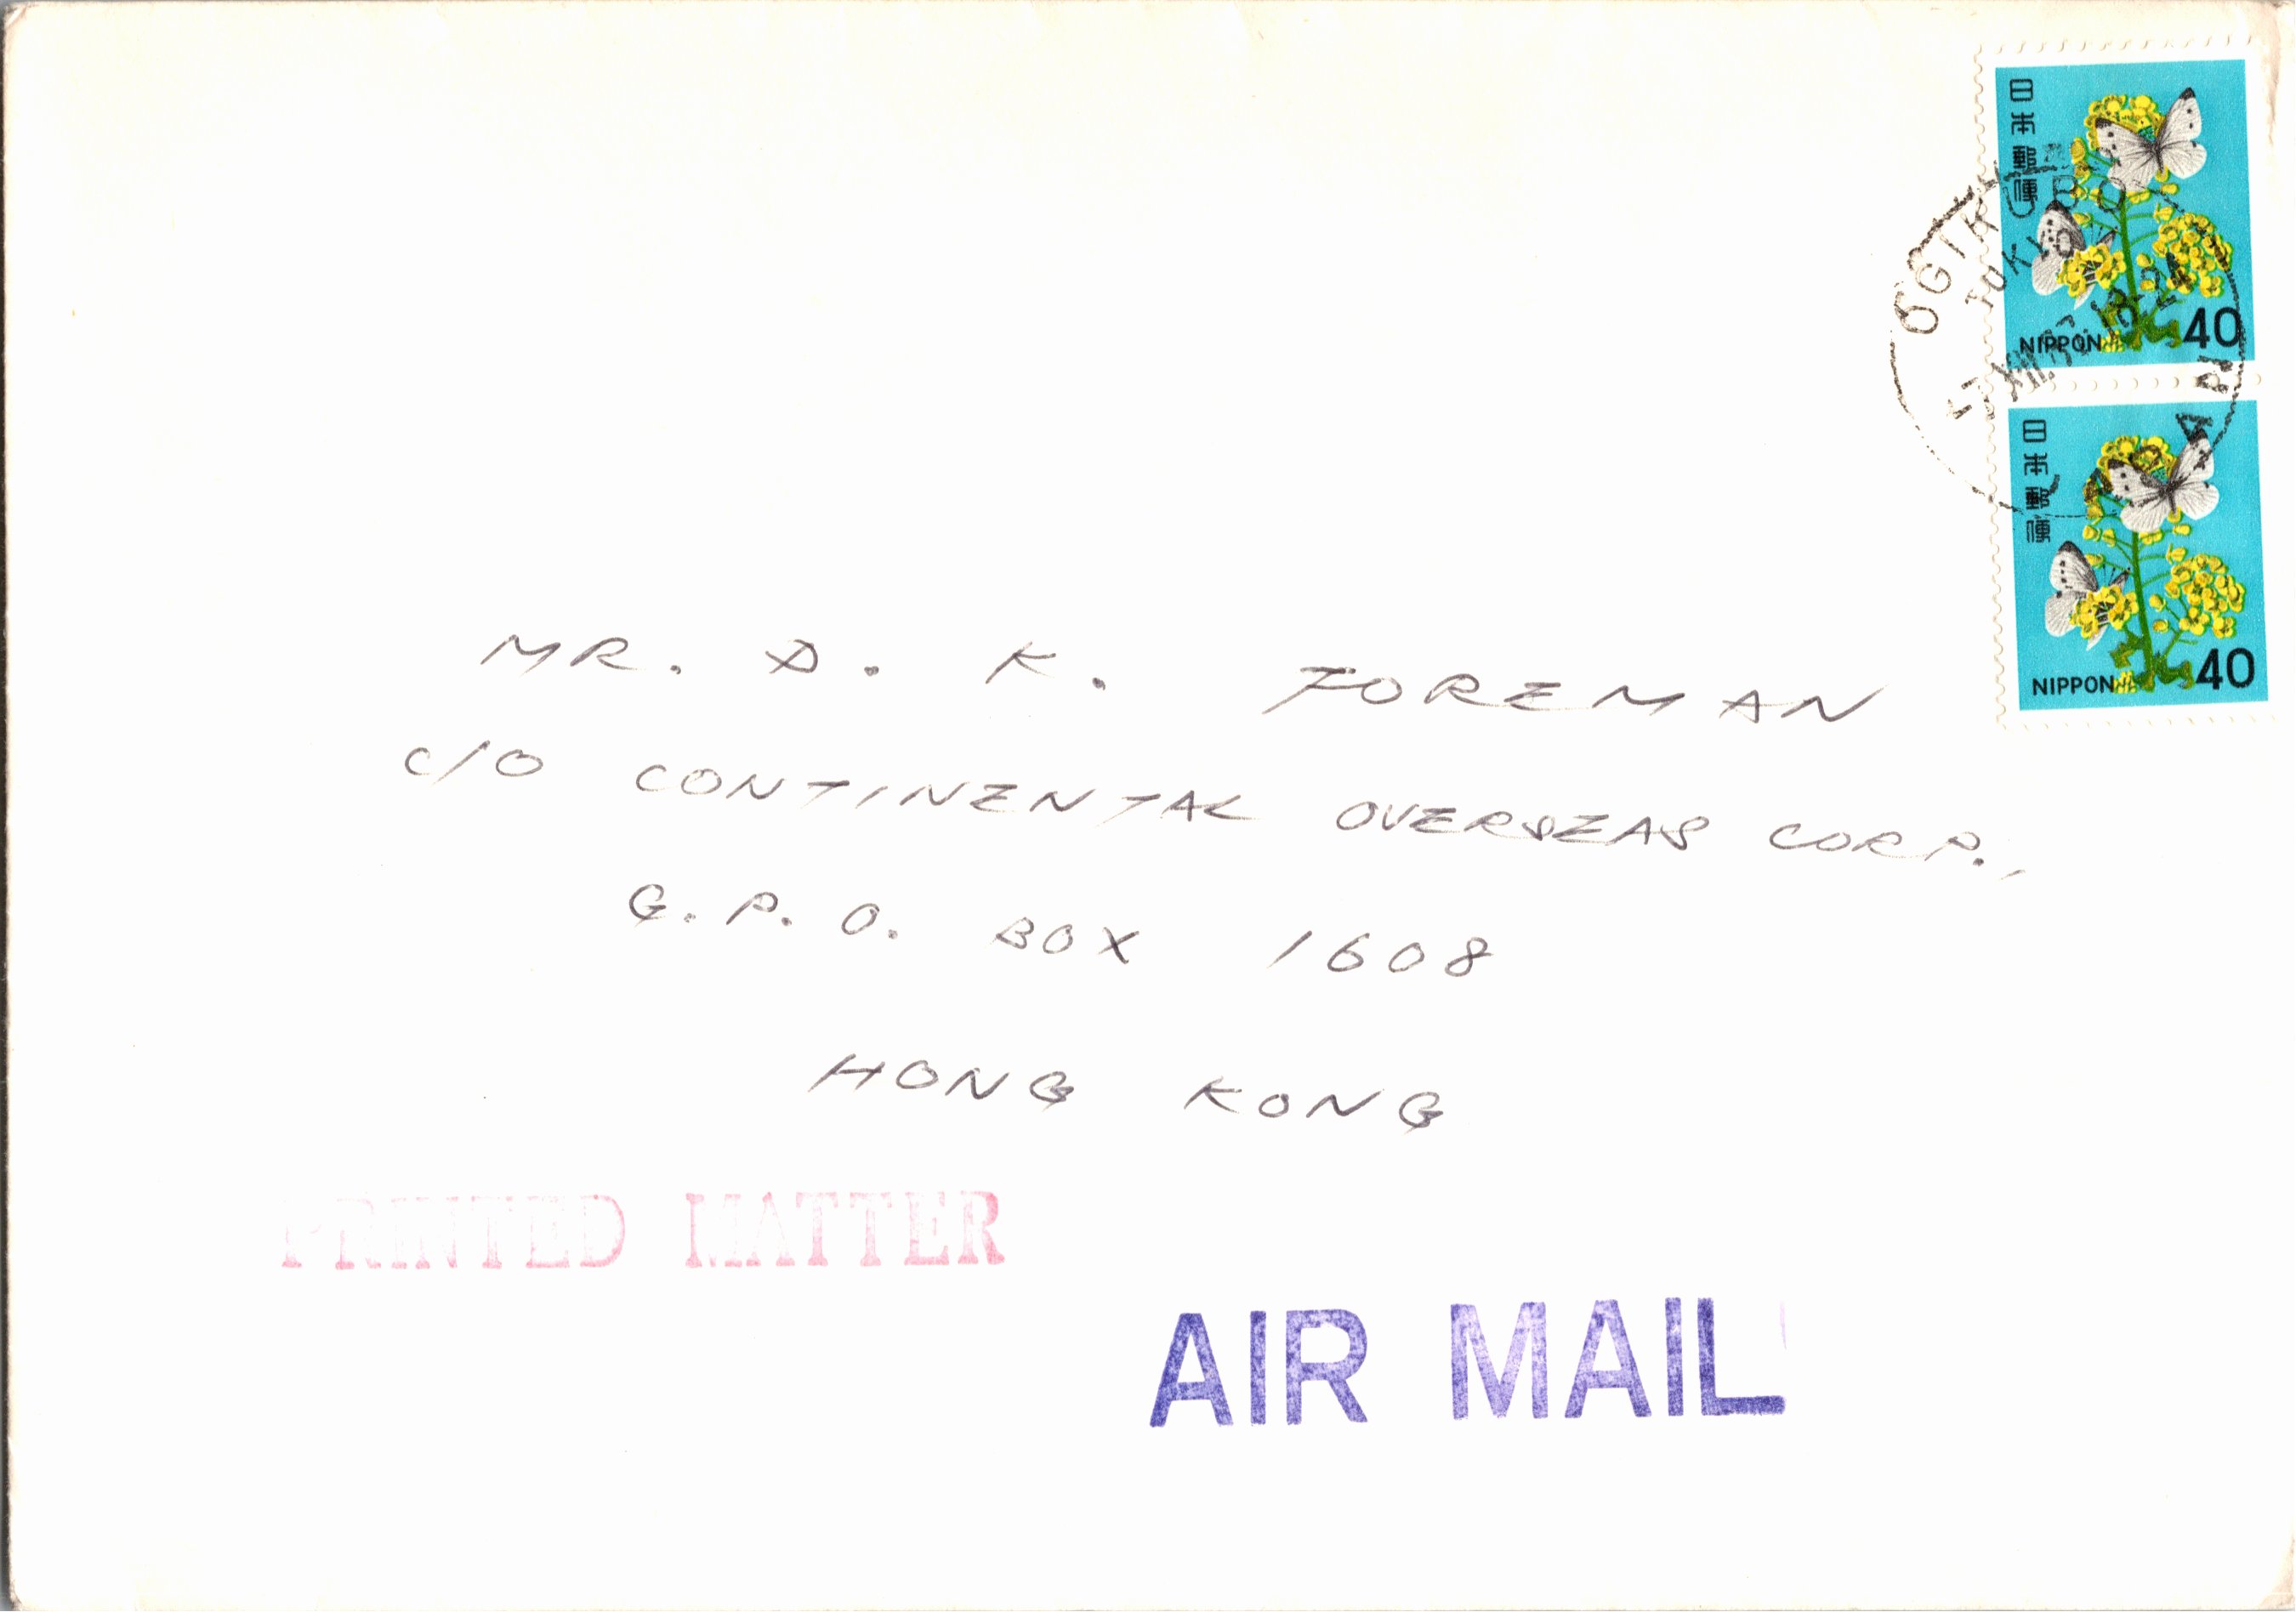 日本郵便
NIPPON 40
日本郵便
NIPPON 40
OGIKUBO
TOKYO
JAPAN
MR. D. K. FOREMAN
C/O CONTINENTAL OVERSEAS CORP.,
G. P. O. BOX 1608
HONG KONG
PRINTED MATTER
AIR MAIL